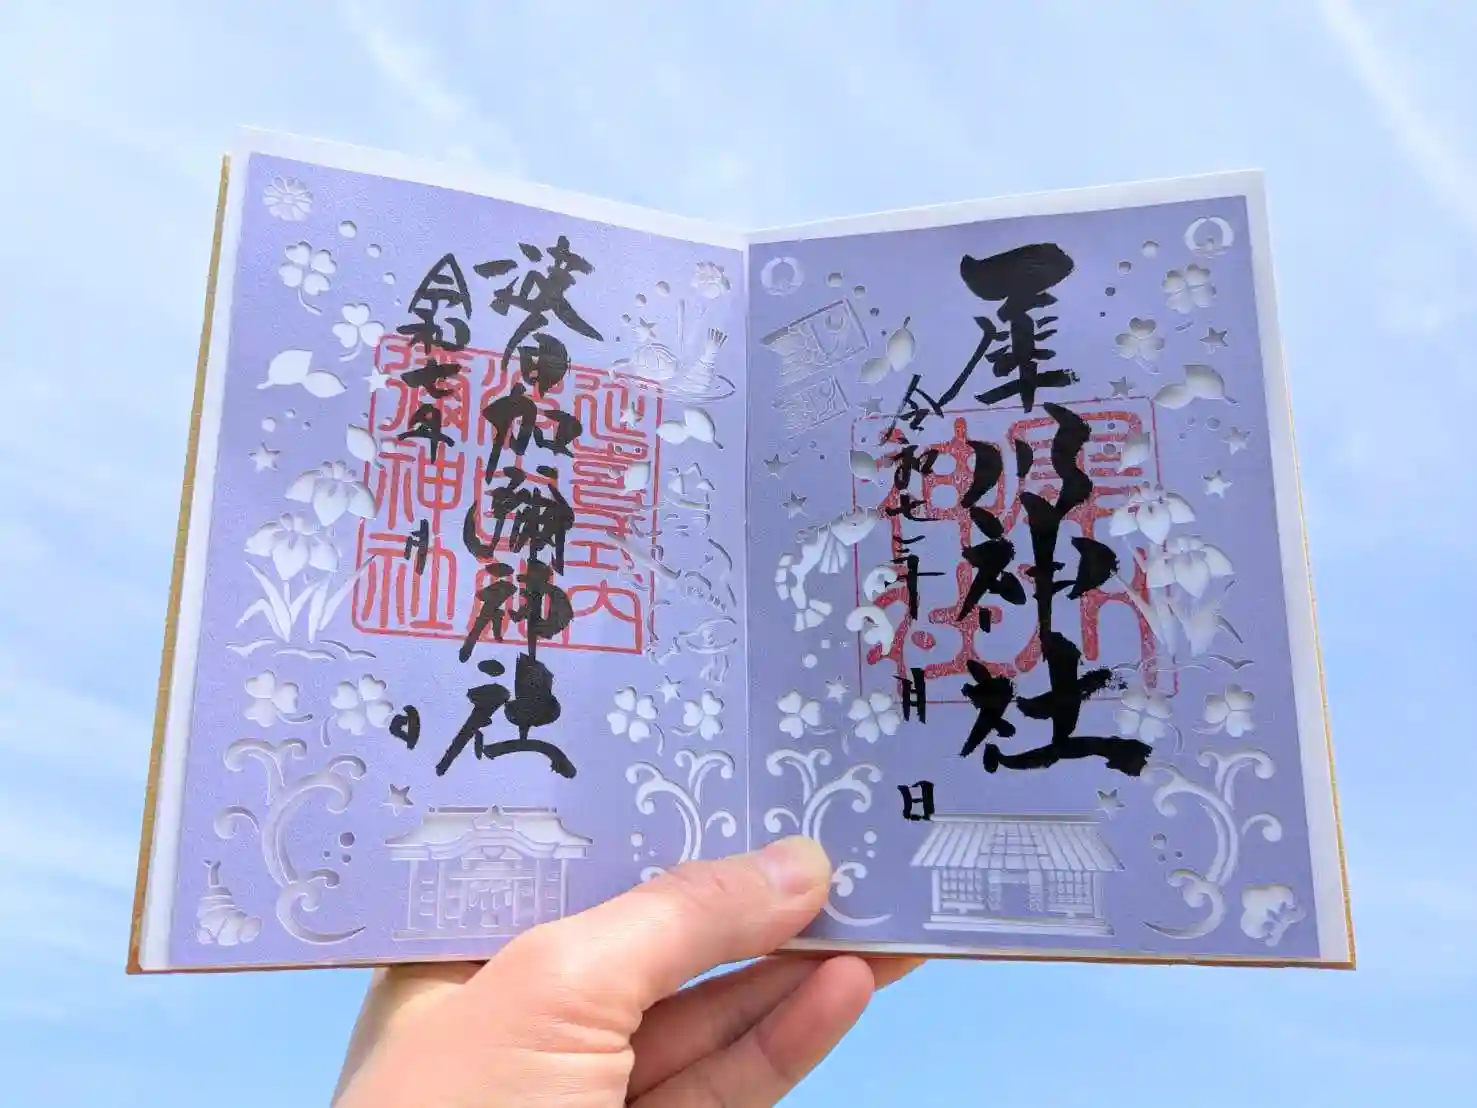 犀川神社
犀川
神社
令和七年 月 日
波自加彌神社
延喜式内
波自加
彌神社
令和七年 月 日